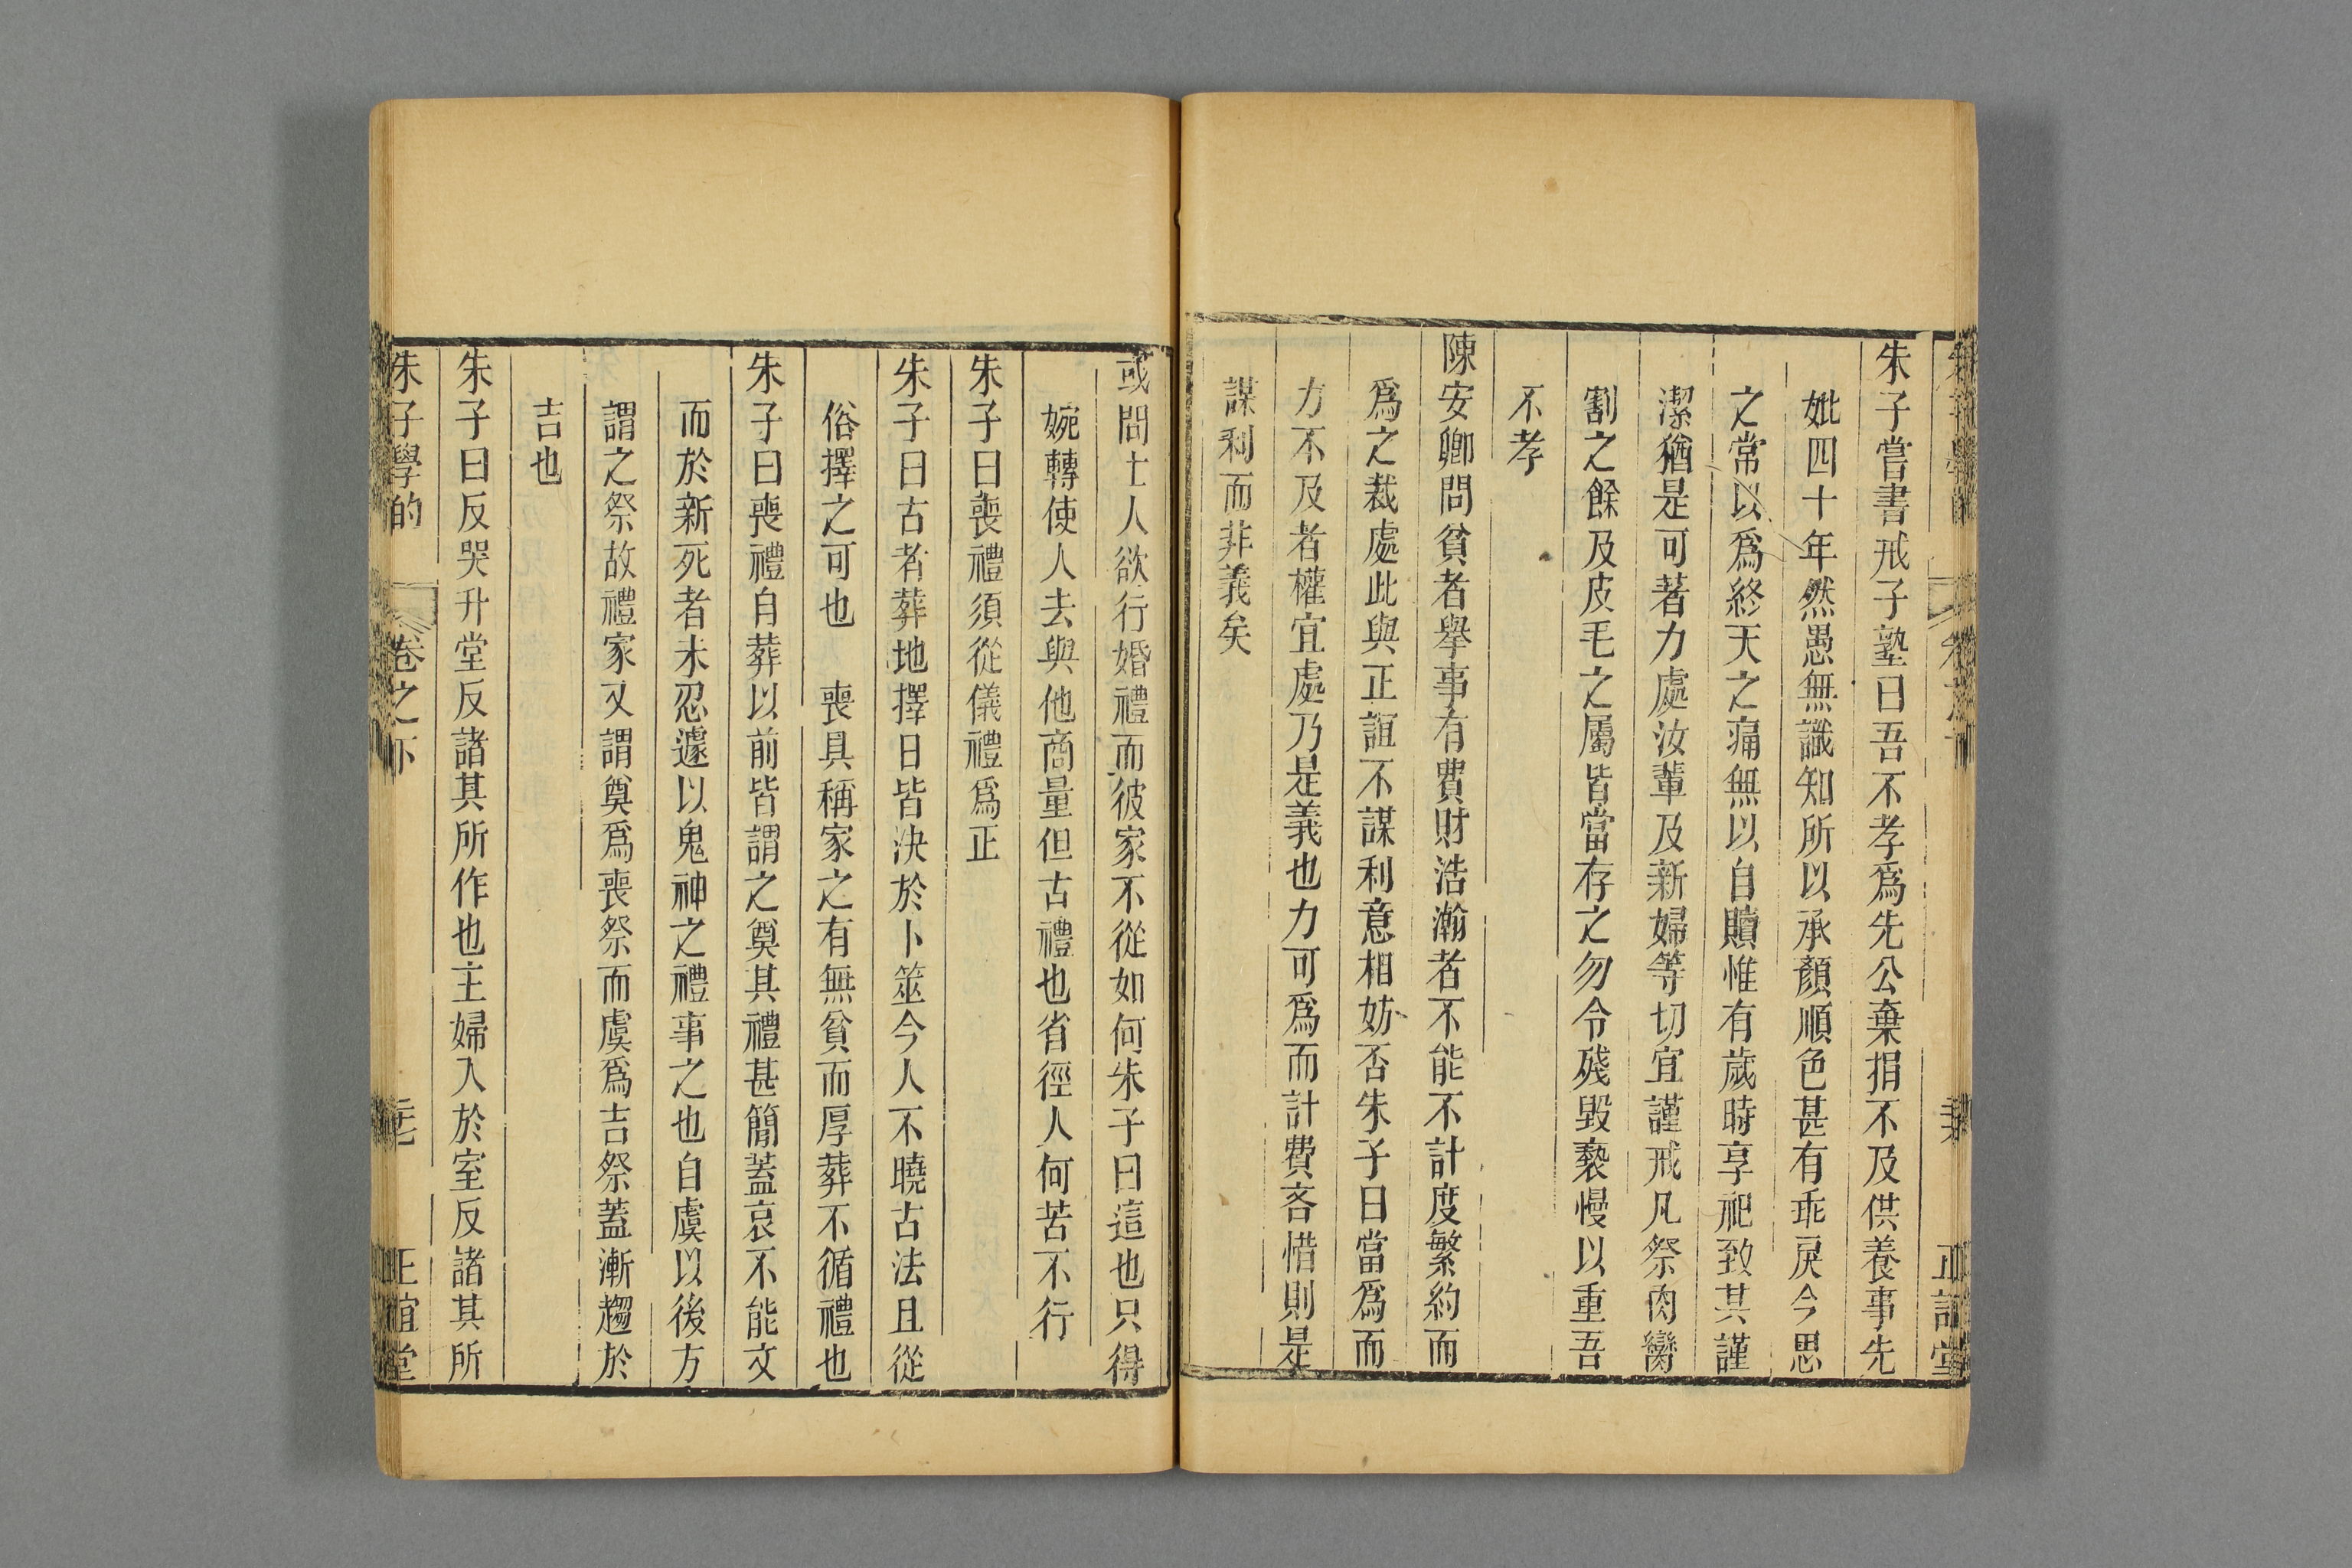 朱子嘗書戒子塾曰吾不孝爲先公棄捐不及供養事先
妣四十年然愚無識知所以承顏順色甚有乖戾今思
之常以爲終天之痛無以自贖惟有歲時享祀致其謹
潔猶是可著力處汝輩及新婦等切宜謹戒凡祭肉臠
割之餘及皮毛之屬皆當存之勿令殘毀褻慢以重吾
不孝
陳安卿問貧者舉事有費財浩瀚者不能不計度繁約而
爲之裁處此與正誼不謀利意相妨否朱子曰當爲而
力不及者權宜處乃是義也力可爲而計費吝惜則是
謀利而非義矣
或問士人欲行婚禮而彼家不從如何朱子曰這也只得
婉轉使人去與他商量但古禮也省徑人何苦不行
朱子曰喪禮須從儀禮爲正
朱子曰古者葬地擇日皆決於卜筮今人不曉古法且從
俗擇之可也 喪具稱家之有無貧而厚葬不循禮也
朱子曰喪禮自葬以前皆謂之奠其禮甚簡蓋哀不能文
而於新死者未忍遽以鬼神之禮事之也自虞以後方
謂之祭故禮家又謂奠爲喪祭而虞爲吉祭蓋漸趨於
吉也
朱子曰反哭升堂反諸其所作也主婦入於室反諸其所
朱子學的 卷之下 正誼堂